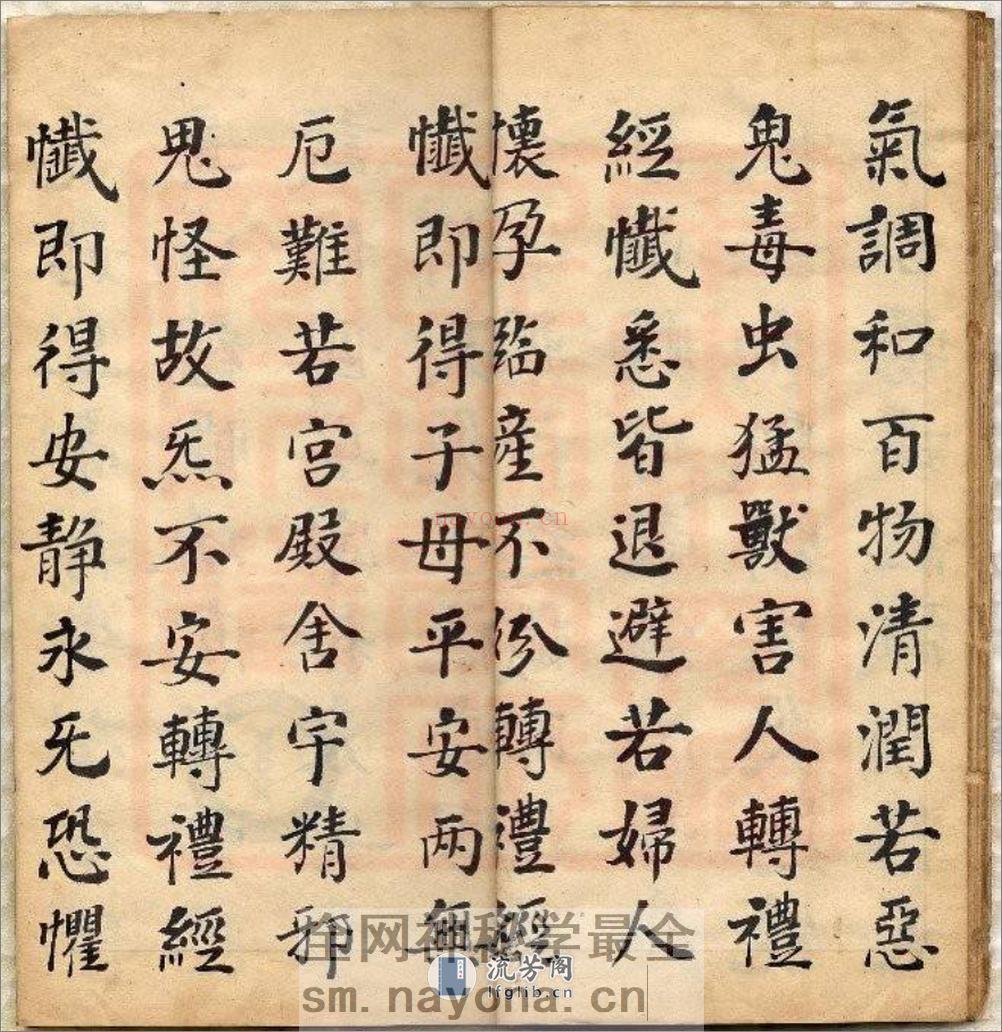 氣調和百物清潤若惡
鬼毒虫猛獸害人轉禮
經懺悉皆退避若婦人
懷孕臨産不分轉禮經
懺即得子母平安兩無
厄難若宮殿舍宇精邪
鬼怪故炁不安轉禮經
懺即得安静永无恐懼
nayona.cn
全网神秘学最全
流芳阁
lfglib.cn
sm.nayona.cn